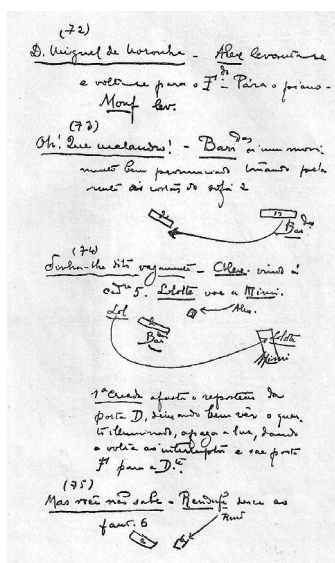 (72)
D. Miguel de Noronha - Alex levanta-se
e volta-se para o Fdo - Pára o piano -
Monf lev.
(73)
Oh! Que malandro! - Bars das com movi
mento bem pronunciado
costas do sofá 2
2 13
Bar das
(74)
Tinha-lhe dito vagamente - vindo á
cadra 5. Lolotte vae a Mimi.
Lol Alex.
Bar Lolotte
Mimi
1ª creada afasta o reposteiro da
porta D, deixando bem vêr o quar-
to illuminado, apaga a luz, dando
a volta ao interruptor e sae porta
para a D.ta
(75)
Mas você não sabe - Rendufe desce ao
faut. 6
2 6 Rend